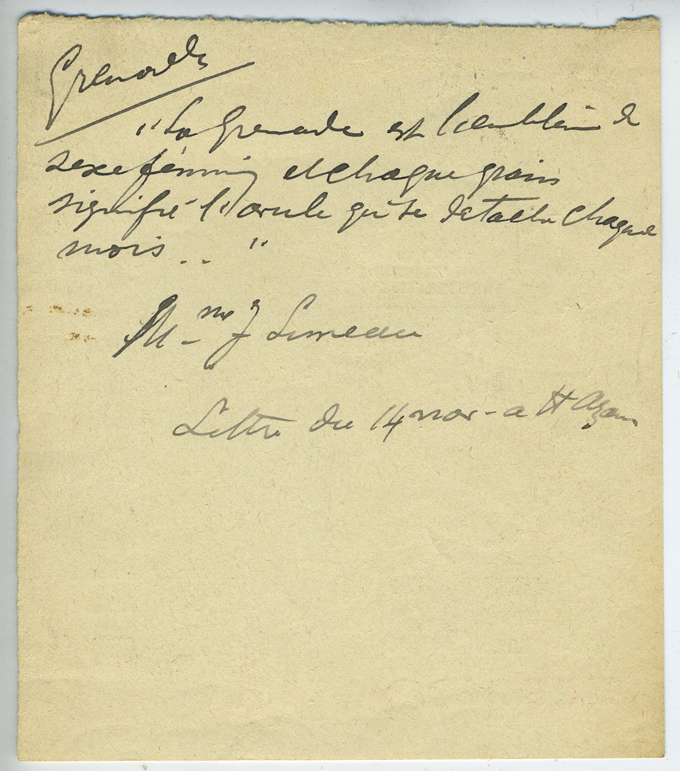 Grenade
"La Grenade est l'emblème de
sexe féminin et chaque grain
signifie l'ovule qui se détache chaque
mois.. "
M-me J Limeau
Lettre du 14 nov - a H